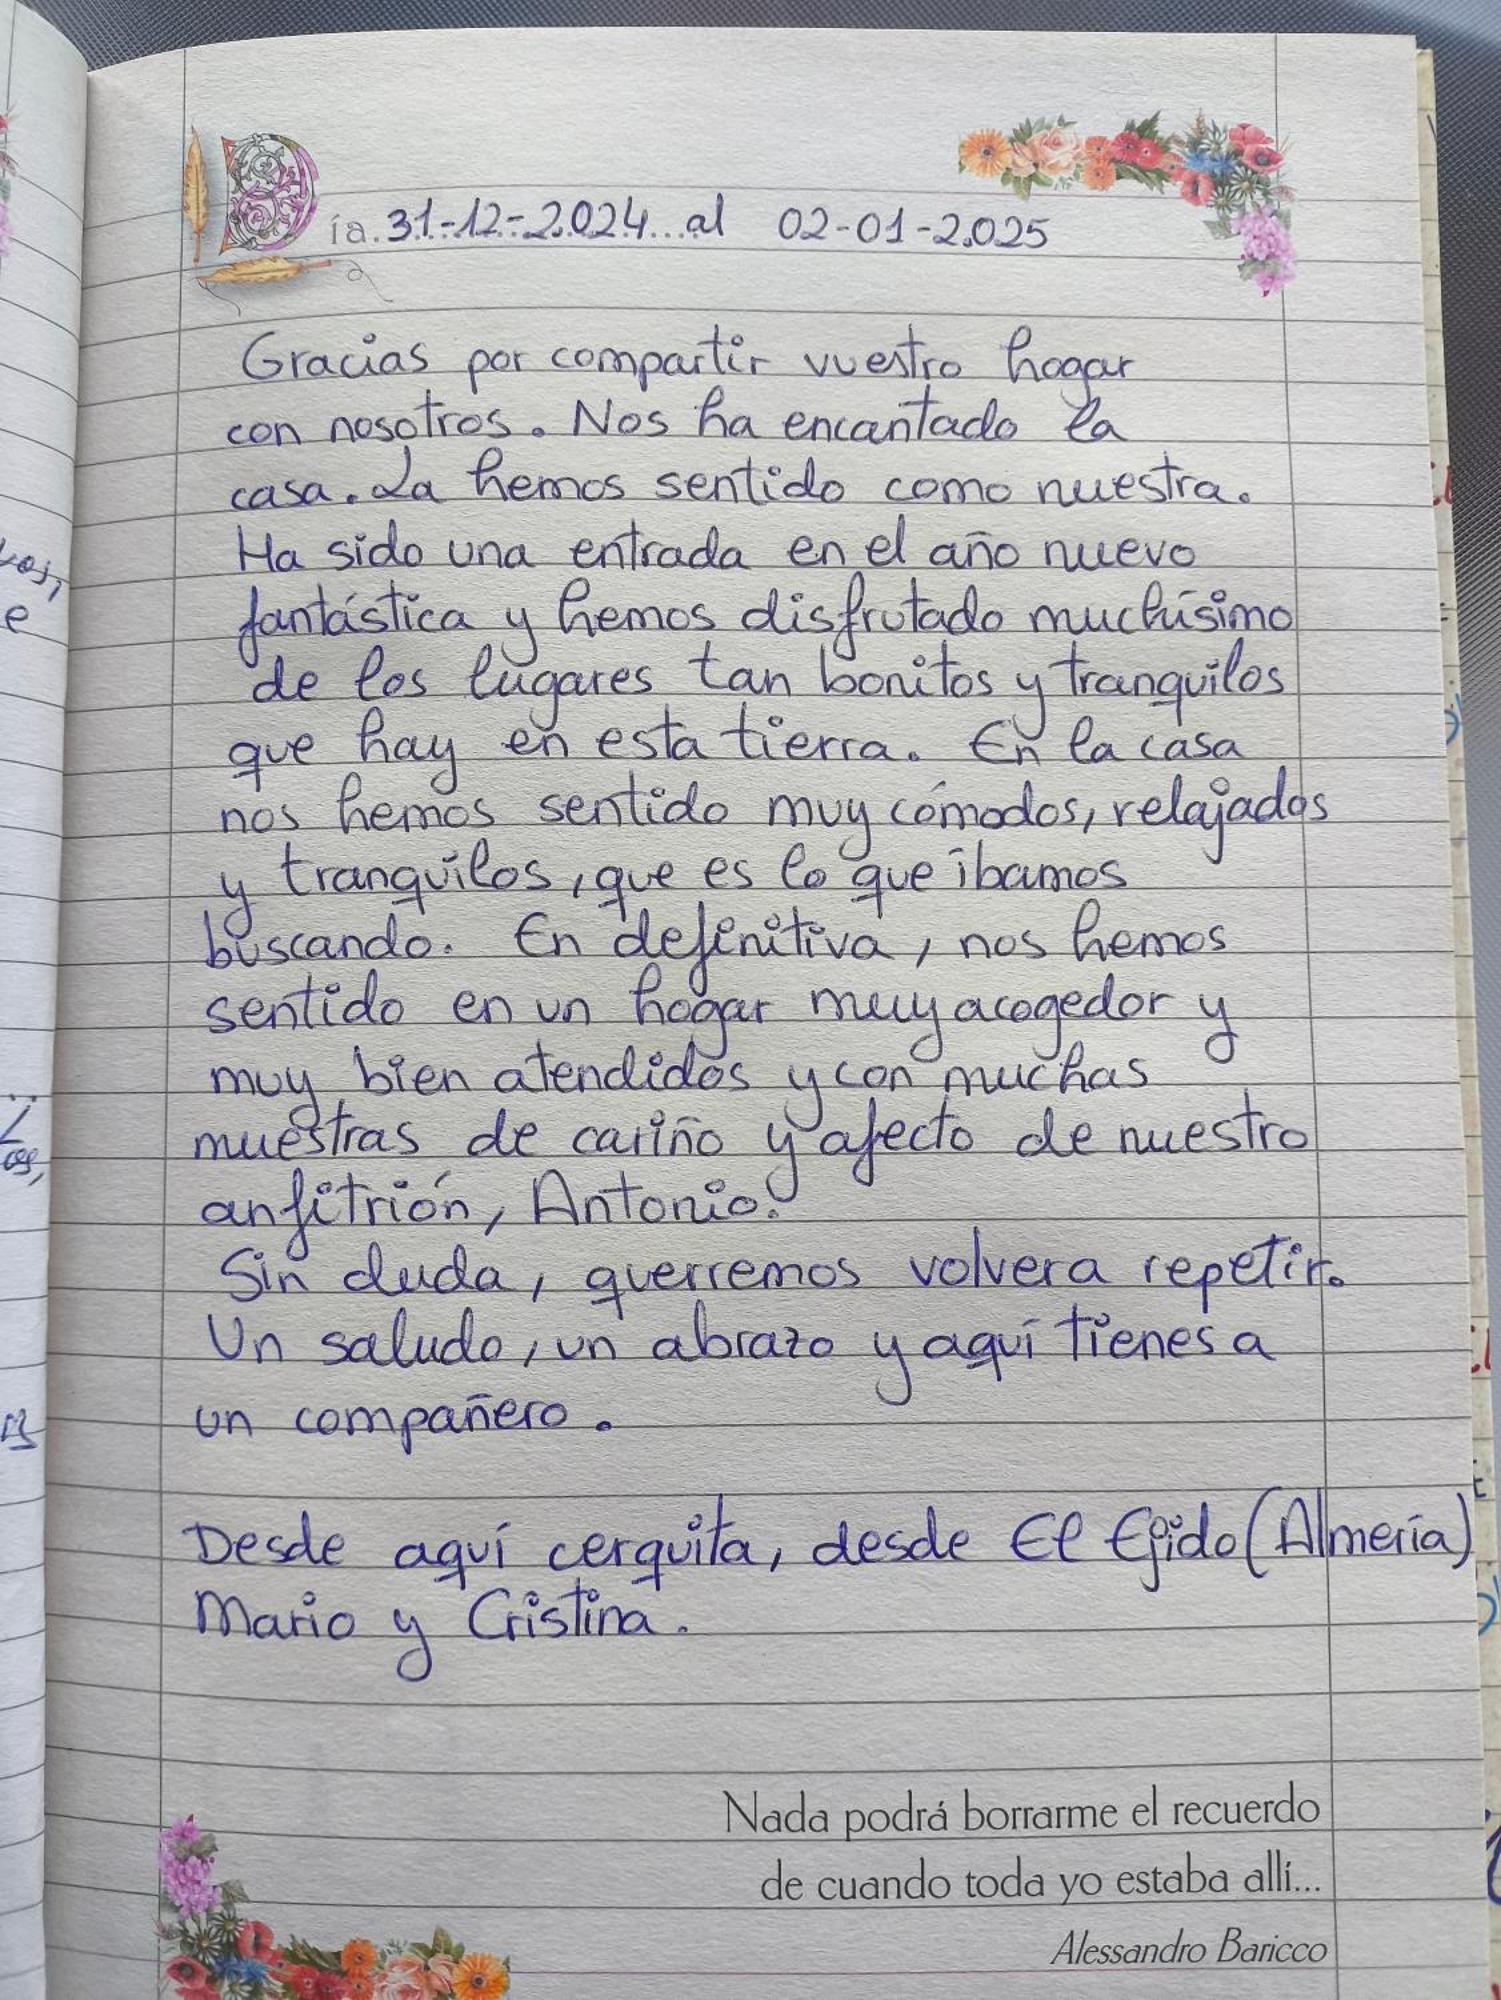 Día. 31-12-2024...al 02-01-2025
Gracias por compartir vuestro hogar
con nosotros. Nos ha encantado la
casa. La hemos sentido como nuestra.
Ha sido una entrada en el año nuevo
fantástica y hemos disfrutado muchísimo
de los lugares tan bonitos y tranquilos
que hay en esta tierra. En la casa
nos hemos sentido muy cómodos, relajados
y tranquilos, que es lo que ibamos
buscando. En definitiva, nos hemos
sentido en un hogar muy acogedor y
muy bien atendidos y con muchas
muestras de cariño y afecto de nuestro
anfitrión, Antonio.
Sin duda, querremos volver a repetir.
Un saludo, un abrazo y aquí tienes a
un compañero.
Desde aquí cerquita, desde El Ejido (Almería)
Mario y Cristina.
Nada podrá borrarme el recuerdo
de cuando toda yo estaba allí...
Alessandro Baricco